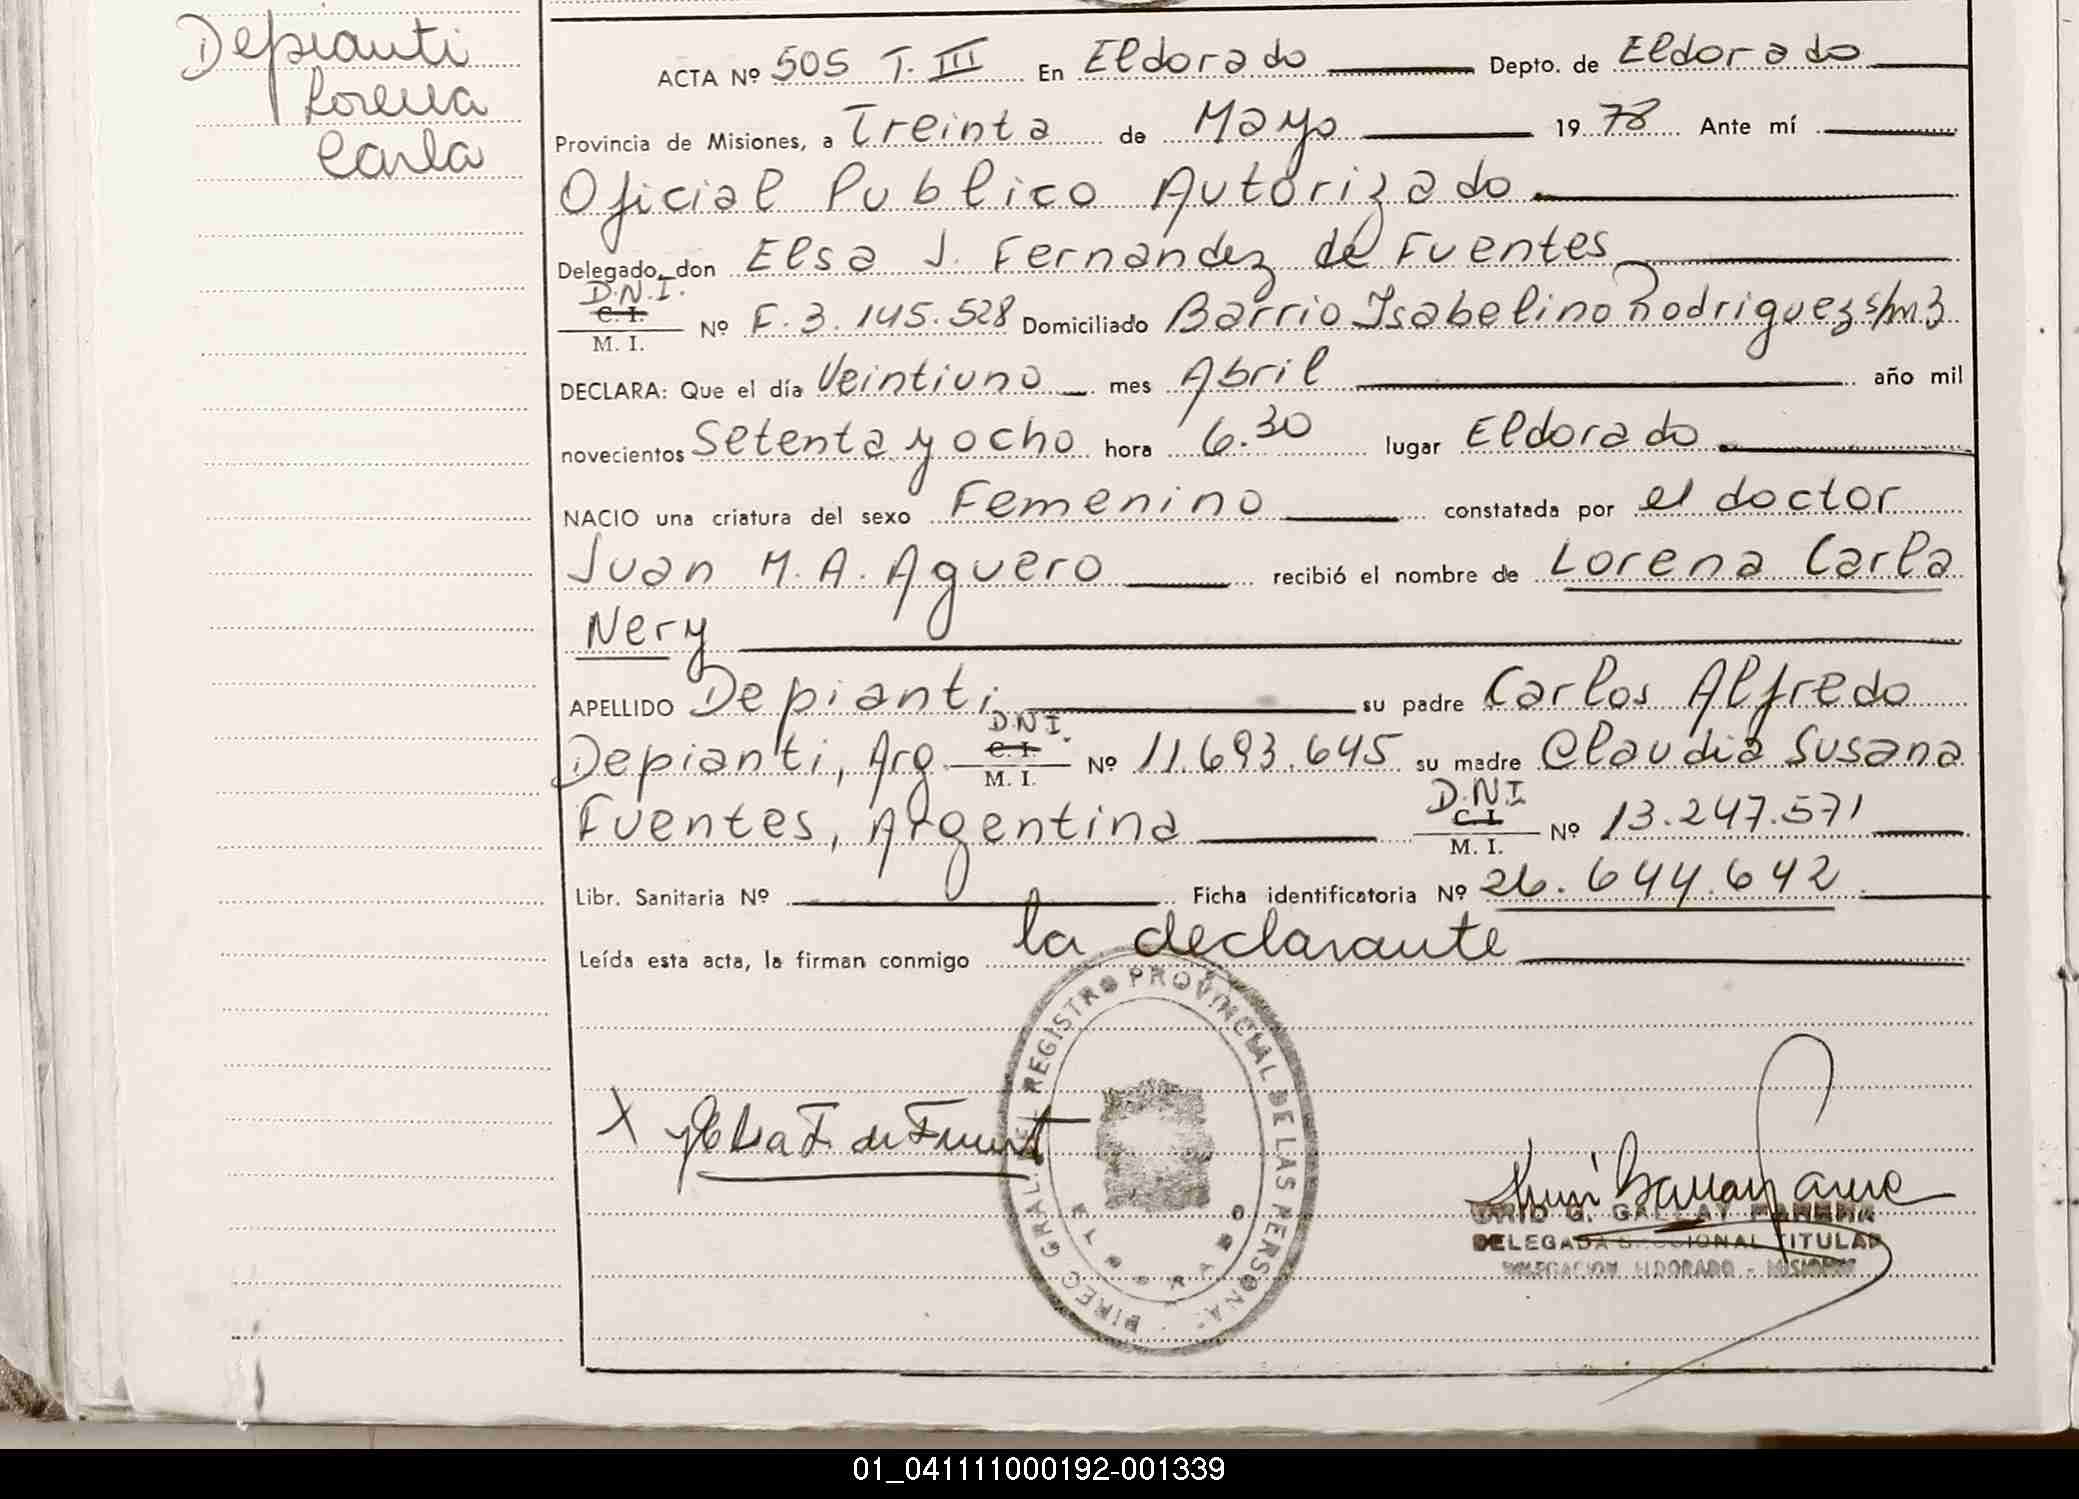 Depianti
Lorena
Carla
ACTA Nº 505 T. III En Eldorado Depto. de Eldorado
Provincia de Misiones, a Treinta de Mayo 19 78 Ante mí
Oficial Publico Autorizado
Delegado, don Elsa J. Fernandez de Fuentes
D.N.I.
C. I.
M. I.
Nº F. 3.145.528 Domiciliado Barrio Isabelino Rodriguez
DECLARA: Que el día Veintiuno mes Abril año mil
novecientos Setenta y ocho hora 6.30 lugar Eldorado
NACIO una criatura del sexo Femenino constatada por el doctor
Juan M. A. Aguero recibió el nombre de Lorena Carla
Nery
APELLIDO Depianti su padre Carlos Alfredo
D.N.I.
Depianti, Arg. C. I. M. I. Nº 11.693.645 su madre Claudia Susana
D.N.I
Fuentes, Argentina C. I. M. I. Nº 13.247.571
Libr. Sanitaria Nº Ficha identificatoria Nº 26.644.642
Leída esta acta, la firman conmigo la declarante
DIREC. GRAL. DEL REGISTRO PROVINCIAL DE LAS PERSONAS
ELDORADO
X Elsa F. de Fuentes
DELEGADA SECCIONAL TITULAR
DELEGACION ELDORADO - MISIONES
01_041111000192-001339